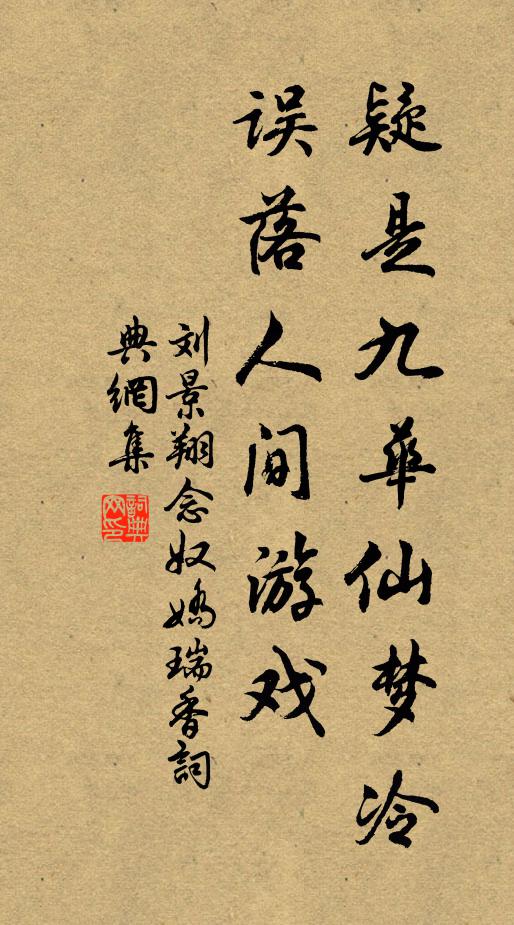 疑是九華仙梦冷
误落人间游戏
刘景翔念奴嬌瑞香詞
典網集
詞典網印